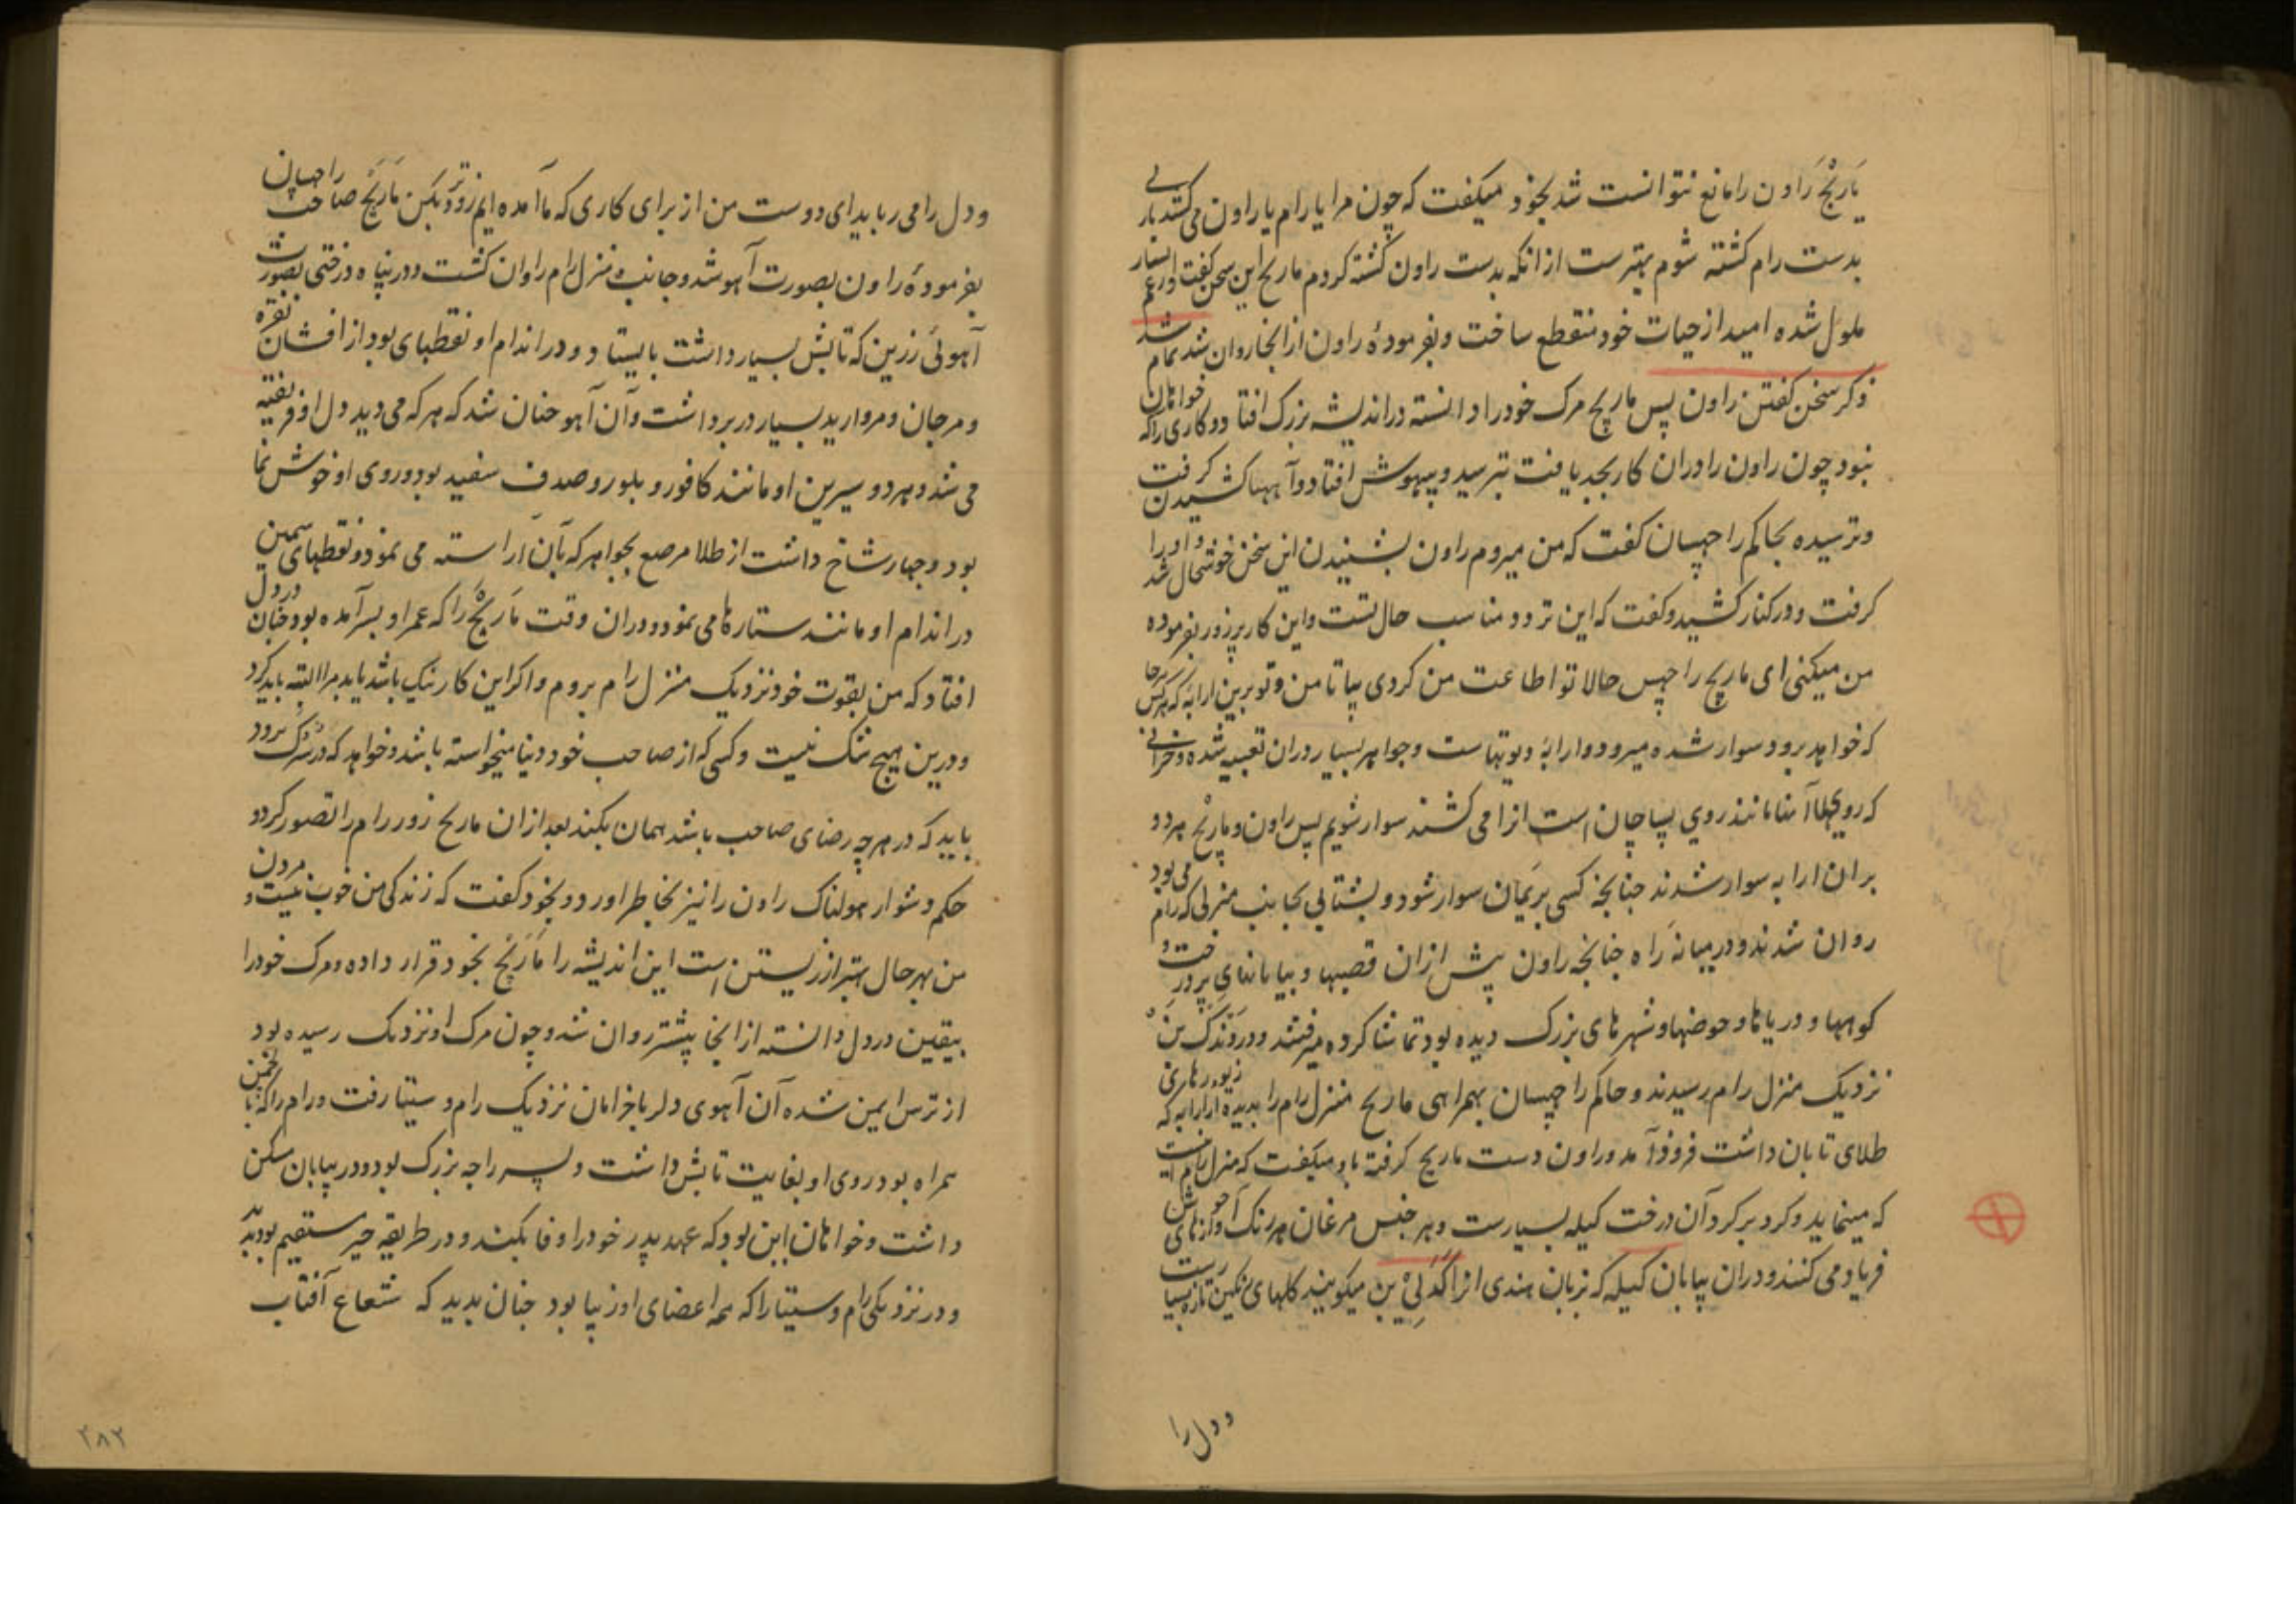 مارنچ راون را مانع نتوانست شد بخود میکفت که چون مرا یا رام یا راون می کشد باری
بدست رام کشته شوم بهترست از انکه بدست راون کشته کردم ماریچ این سخن کفت و بسیار
ملول شده امید از حیات خود منقطع ساخت و بفرمودهٔ راون از انجا روان شد تمام شد
ذکر سخن کفتن راون پس ماریچ مرک خود را دانسته در اندیشه بزرک افتاد و کاری را که خواهان
نبود چون راون را دران کار بجد یافت بترسید و بیهوش افتاد و آهها کشیدن کرفت
و ترسیده بحاکم راچهسان کفت که من میروم راون بشنیدن این سخن خوشحال شد و او را
کرفت و در کنار کشید و کفت که این تردد مناسب حال تست و این کار بر زور بفرموده
من میکنی ای ماریچ راچهس حالا تو اطاعت من کردی بیا تا من و تو برین ارابه که هرکس هر جا
که خواهد برود سوار شده میرود و ارابهٔ دیوتهاست و جواهر بسیار دران تعبیه شده و خرانی
که رویهای آنها مانند روی پساچان است انرا می کشند سوار شویم پس راون و ماریچ هر دو
بران ارابه سوار شدند چنانچه کسی بر بمان سوار شود و بشتابی بجانب منزلی که رام می بود
روان شدند و در میانه راه چنانچه راون پیش ازان قصبها و بیابانهای پر درخت و
کوهها و دریاها و حوضها و شهرهای بزرک دیده بود تماشا کرده میرفتند و در دندک بن
نزدیک منزل رام رسیدند و حاکم راچهسان بهمراهی ماریچ منزل رام را بدیده از ارابه که زیورهای
طلای تابان داشت فرود آمد و راون دست ماریچ کرفته باو میکفت که منزل رام اینست
که مینماید و کرد بر کرد آن درخت کیله بسیارست و هر جنس مرغان هر رنک آوازهای خوش
فریاد می کنند و دران بیابان کیله که بزبان هندی انرا کدلی بن میکویند کلهای رنکین تازه بسیارست
و دل را
و دل را می رباید ای دوست من از برای کاری که ما آمده ایم زودتر بکن ماریچ صاحب راچهسان
بفرمودهٔ راون بصورت آهو شد و جانب منزل رام روان کشت و در پناه درختی بصورت
آهوئی زرین که تابش بسیار داشت بایستاد و در اندام او نقطهای بود از افشان نقره
و مرجان و مروارید بسیار در بر داشت و آن آهو چنان شد که هر که می دید دل او فریفته
می شد و هر دو سیرین او مانند کافور و بلور و صدف سفید بود و روی او خوش نما
بود و چهار شاخ داشت از طلا مرصع بجواهر که بآن آراسته می نمود و نقطهای سیمین
در اندام او مانند ستارها می نمود و دران وقت ماریچ را که عمر او بسر آمده بود چنان در دل
افتاد که من بقوت خود نزدیک منزل رام بروم و اکر این کار نیک باشد یا بد مرا البته باید کرد
و درین هیچ شک نیست و کسی که از صاحب خود دنیا میخواسته باشد و خواهد که در سرک برود
باید که در هر چه رضای صاحب باشد همان بکند بعد ازان ماریچ زور رام را تصور کرد و
حکم دشوار هولناک راون را نیز بخاطر اورد و بخود کفت که زندکی من خوب نیست و مردن
من بهر حال بهتر از زیستن است این اندیشه را ماریچ بخود قرار داده و مرک خود را
بیقین در دل دانسته از انجا پیشتر روان شد و چون مرک او نزدیک رسیده بود
از ترس ایمن شده آن آهوی دلربا خرامان نزدیک رام و سیتا رفت و رام را که با لچمن
همراه بود و روی او بغایت تابش داشت و پسر راجه بزرک بود و در بیابان مسکن
داشت و خواهان این بود که عهد پدر خود را وفا بکند و در طریقه خیر مستقیم بود بدید
و در نزدیکی رام و سیتا را که همه اعضای او زیبا بود چنان بدید که شعاع آفتاب
۲۸۲